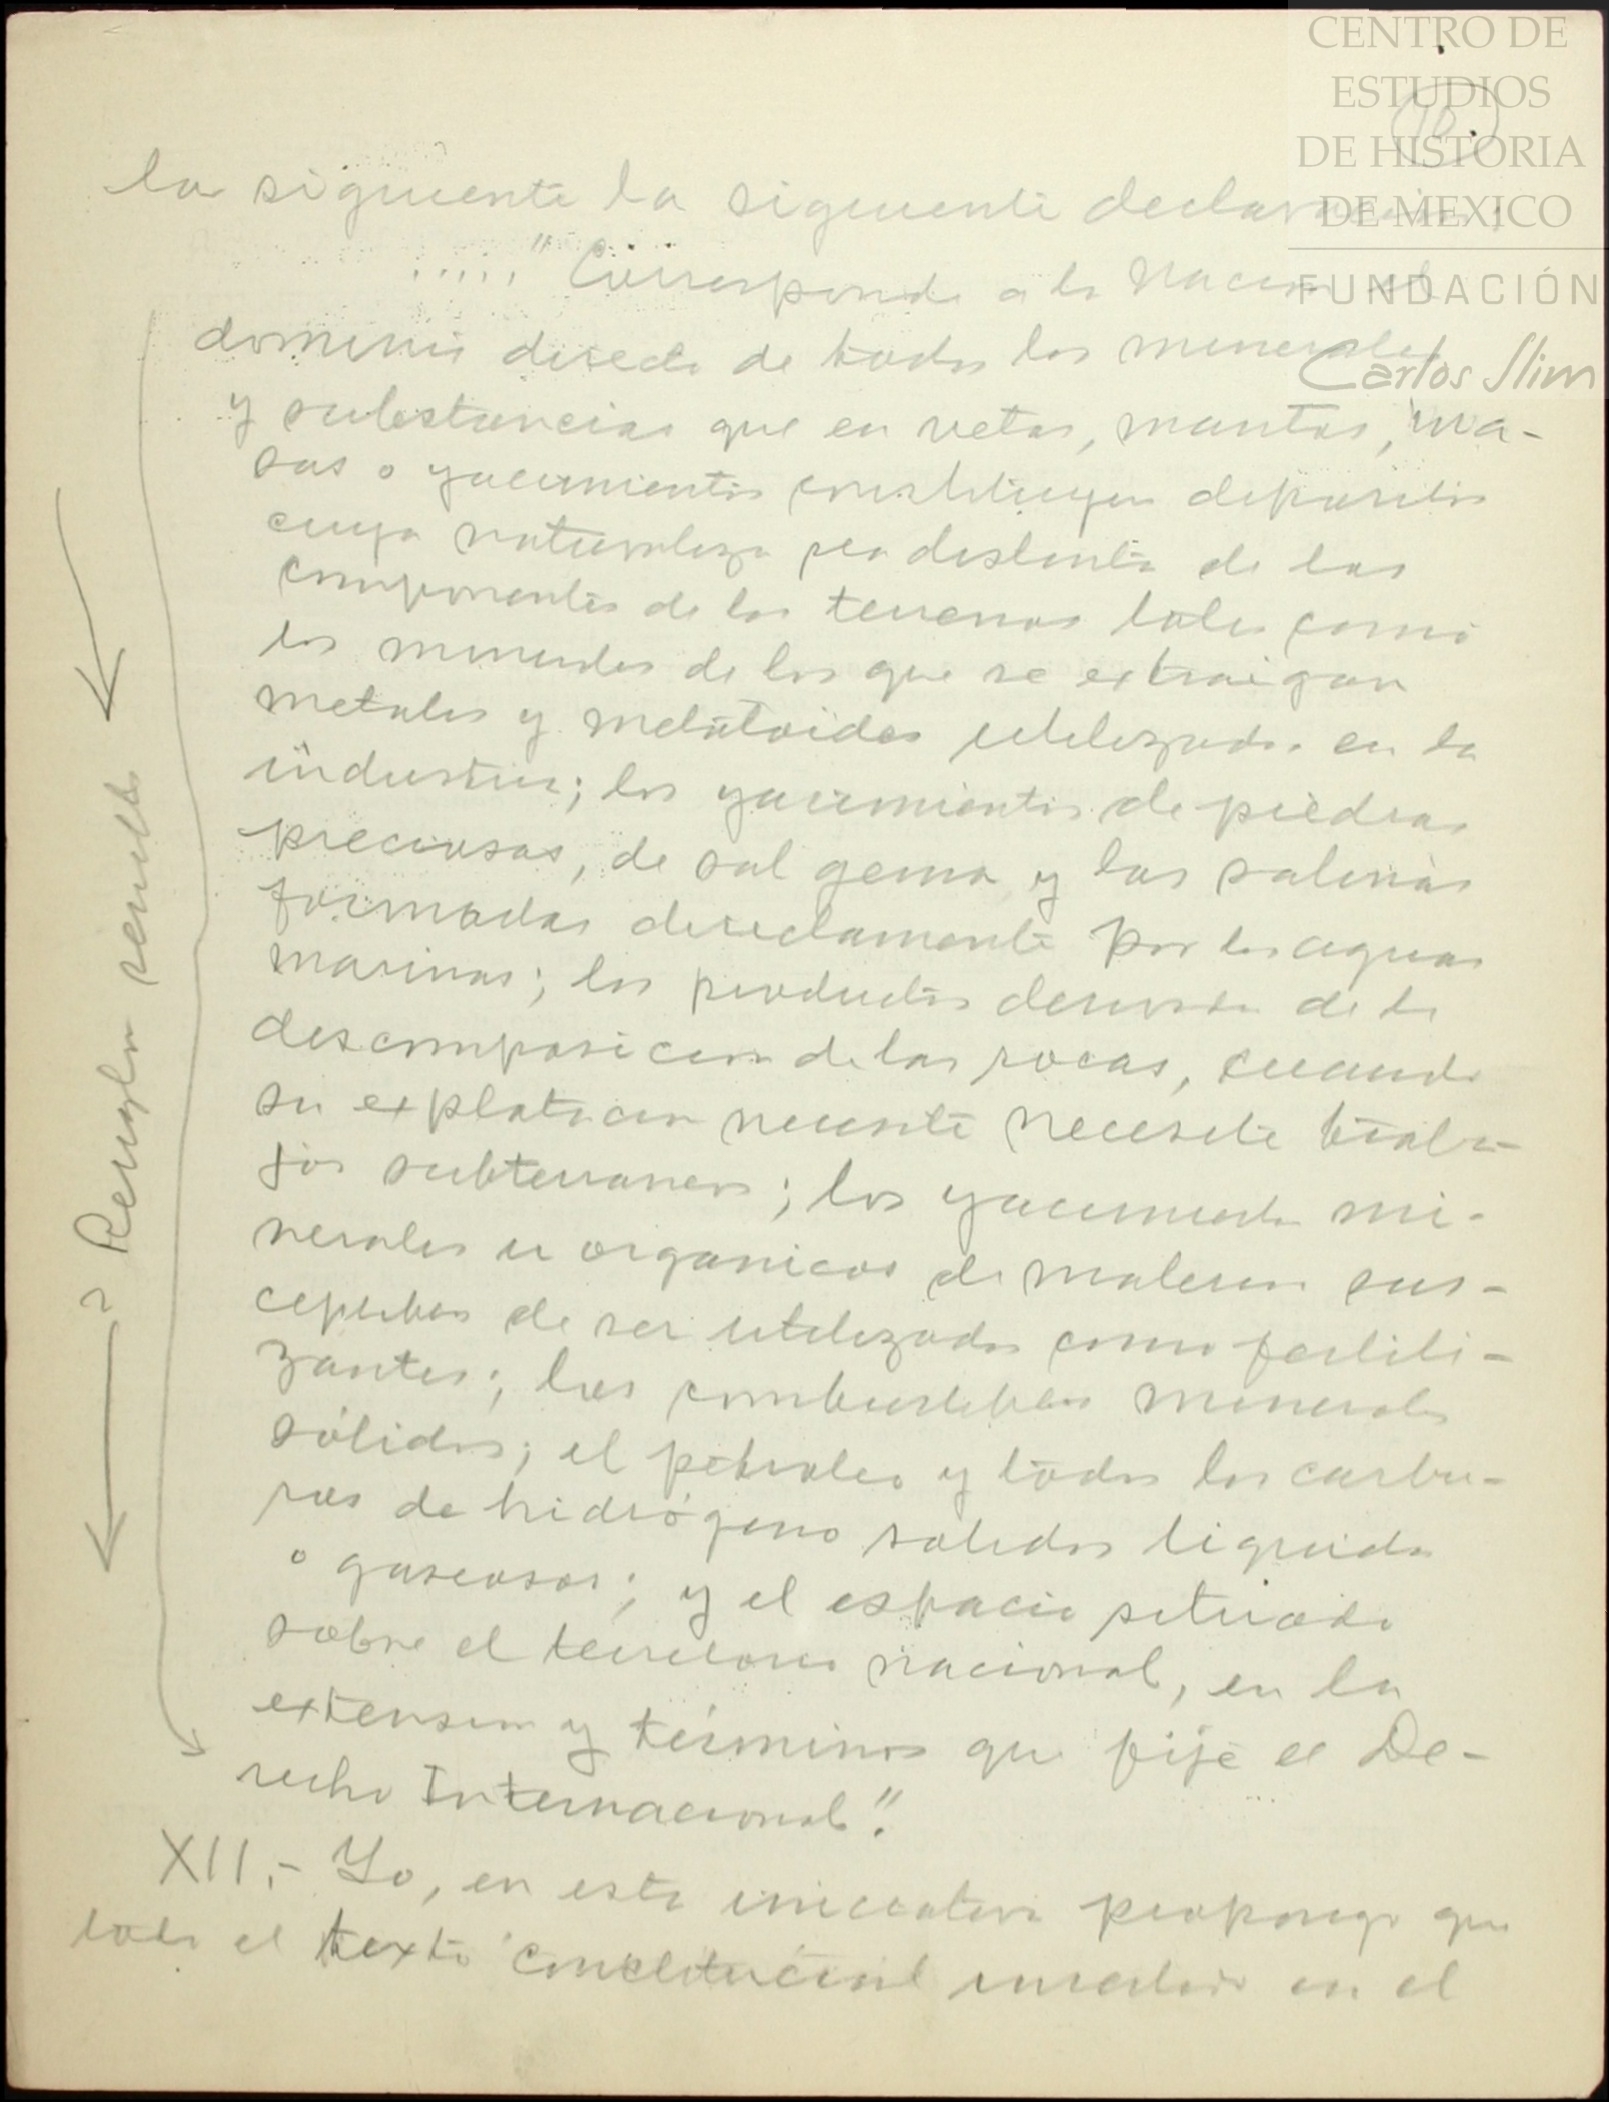 CENTRO DE
ESTUDIOS
DE HISTORIA
DE MEXICO
FUNDACIÓN
Carlos Slim
16.
la siguiente la siguiente declaración:
....." Corresponde a la Nacion el
dominio directo de todos los minerales
y substancias que en vetas, mantos, ma-
sas o yacimientos constituyen depositos
cuya naturaleza sea distinta de los
componentes de los terrenos tales como
los minerales de los que se extraigan
metales y metaloides utilizados en la
industria; los yacimientos de piedras
preciosas, de sal gema y las salinas
formadas directamente por las aguas
marinas; los productos derivados de la
descomposicion de las rocas, cuando
su explotacion necesite necesite traba-
jos subterraneos; los yacimientos mi-
nerales u organicos de materias sus-
ceptibles de ser utilizadas como fertili-
zantes; los combustibles minerales
sólidos; el petroleo y todos los carbu-
ros de hidrógeno solidos liquidos
o gaseosos; y el espacio situado
sobre el territorio nacional, en la
extension y términos que fije el De-
recho Internacional".
XII.- Yo, en esta iniciativa propongo que
todo el texto constitucional insertado en el
Renglon sencillo